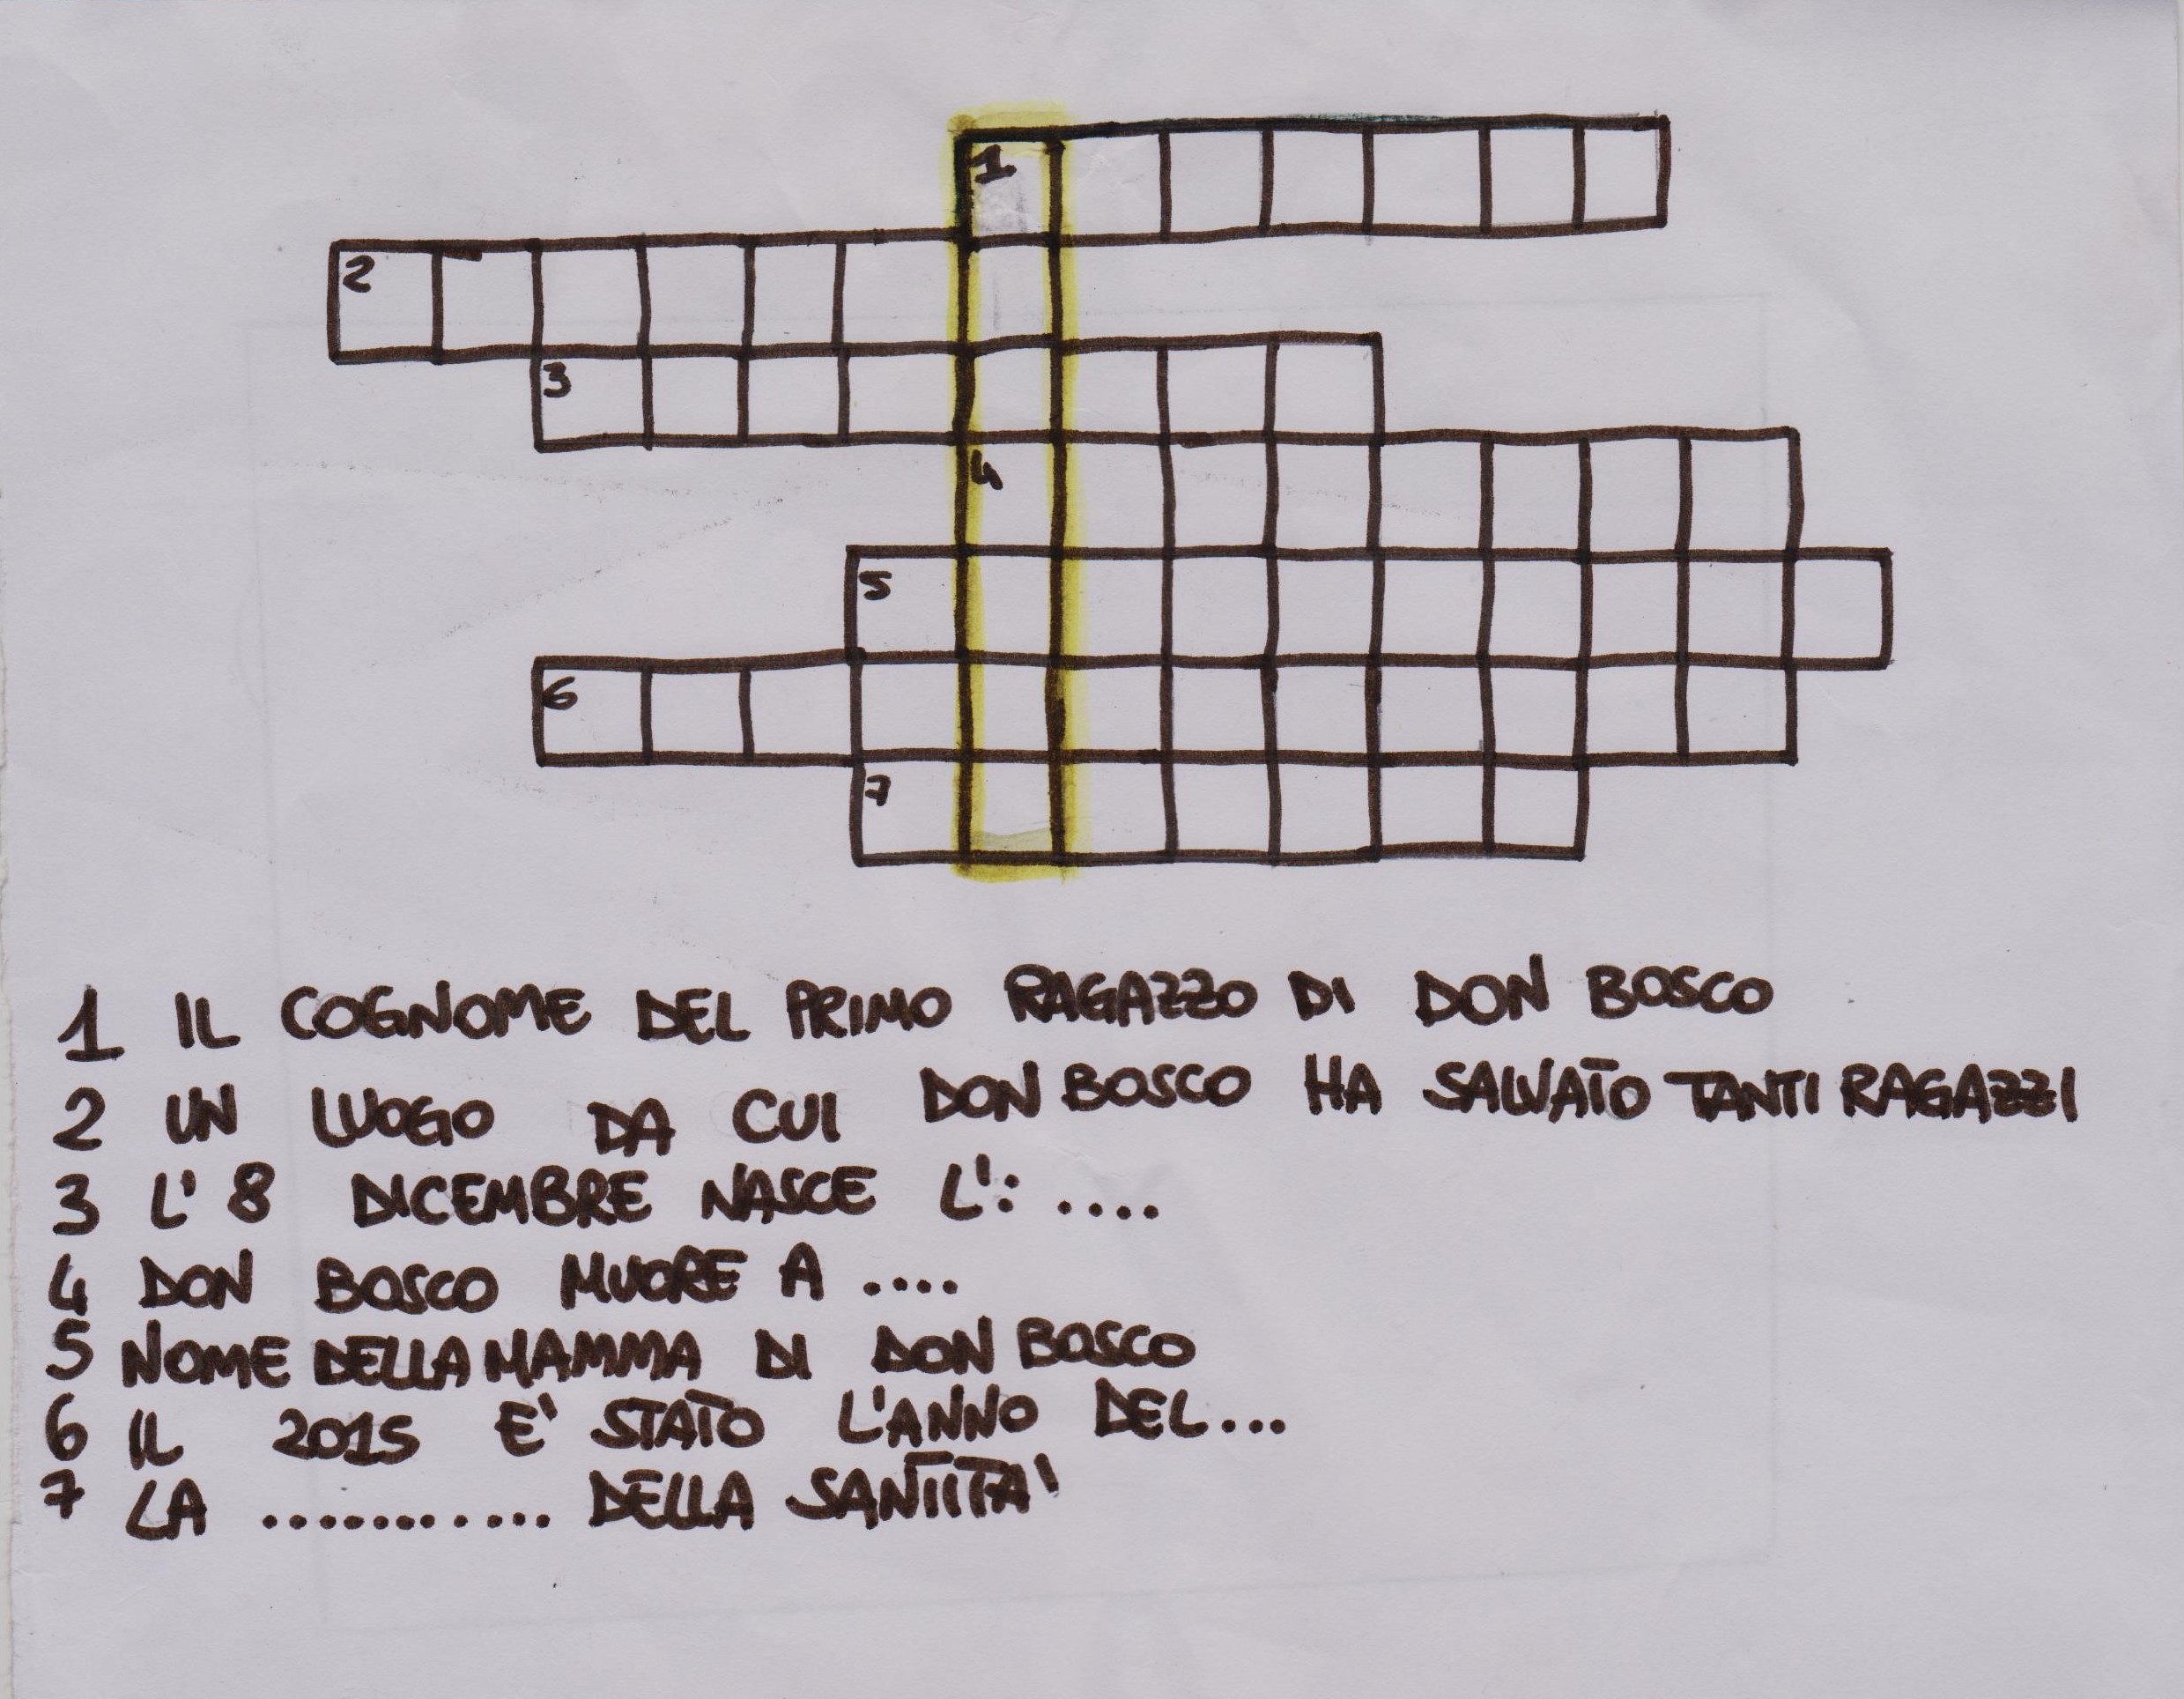 1
2
3
4
5
6
7
1 IL COGNOME DEL PRIMO RAGAZZO DI DON BOSCO
2 UN LUOGO DA CUI DON BOSCO HA SALVATO TANTI RAGAZZI
3 L' 8 DICEMBRE NASCE L': ....
4 DON BOSCO MUORE A ....
5 NOME DELLA MAMMA DI DON BOSCO
6 IL 2015 E' STATO L'ANNO DEL...
7 LA ........... DELLA SANTITA'